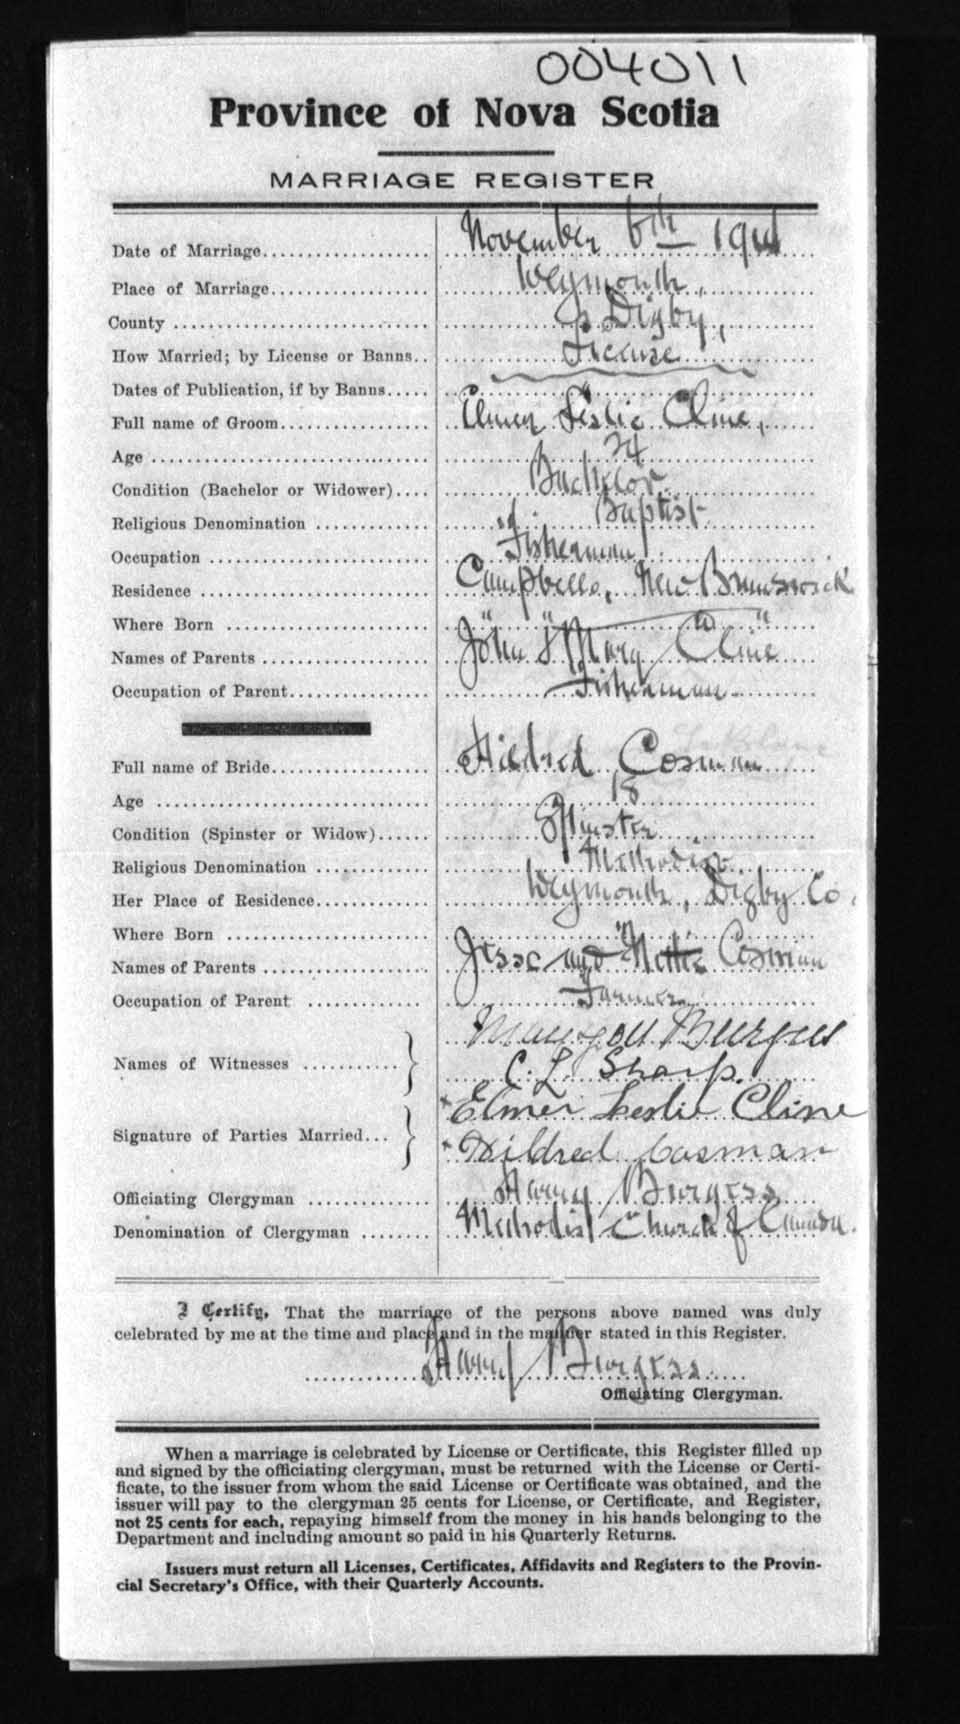 004011
Province of Nova Scotia
MARRIAGE REGISTER
Date of Marriage November 6th 1914
Place of Marriage Weymouth,
County Digby,
How Married; by License or Banns License
Dates of Publication, if by Banns
Full name of Groom Elmer Leslie Cline,
Age 24
Condition (Bachelor or Widower) Bachelor
Religious Denomination Baptist
Occupation Fisherman
Residence Campbello, New Brunswick
Where Born " " " "
Names of Parents John & Mary Cline
Occupation of Parent Fisherman
Full name of Bride Hildred Cosman
Age 18
Condition (Spinster or Widow) Spinster
Religious Denomination Methodist
Her Place of Residence Weymouth, Digby Co.
Where Born "
Names of Parents Jesse and Nettie Cosman
Occupation of Parent Farmer
Names of Witnesses Burgess
C. L. Sharp.
Signature of Parties Married x Elmer Leslie Cline
x Hildred Cosman
Officiating Clergyman Harry Burgess
Denomination of Clergyman Methodist Church of Canada.
I Certify, That the marriage of the persons above named was duly
celebrated by me at the time and place and in the manner stated in this Register.
Harry Burgess
Officiating Clergyman.
When a marriage is celebrated by License or Certificate, this Register filled up
and signed by the officiating clergyman, must be returned with the License or Certi-
ficate, to the issuer from whom the said License or Certificate was obtained, and the
issuer will pay to the clergyman 25 cents for License, or Certificate, and Register,
not 25 cents for each, repaying himself from the money in his hands belonging to the
Department and including amount so paid in his Quarterly Returns.
Issuers must return all Licenses, Certificates, Affidavits and Registers to the Provin-
cial Secretary's Office, with their Quarterly Accounts.